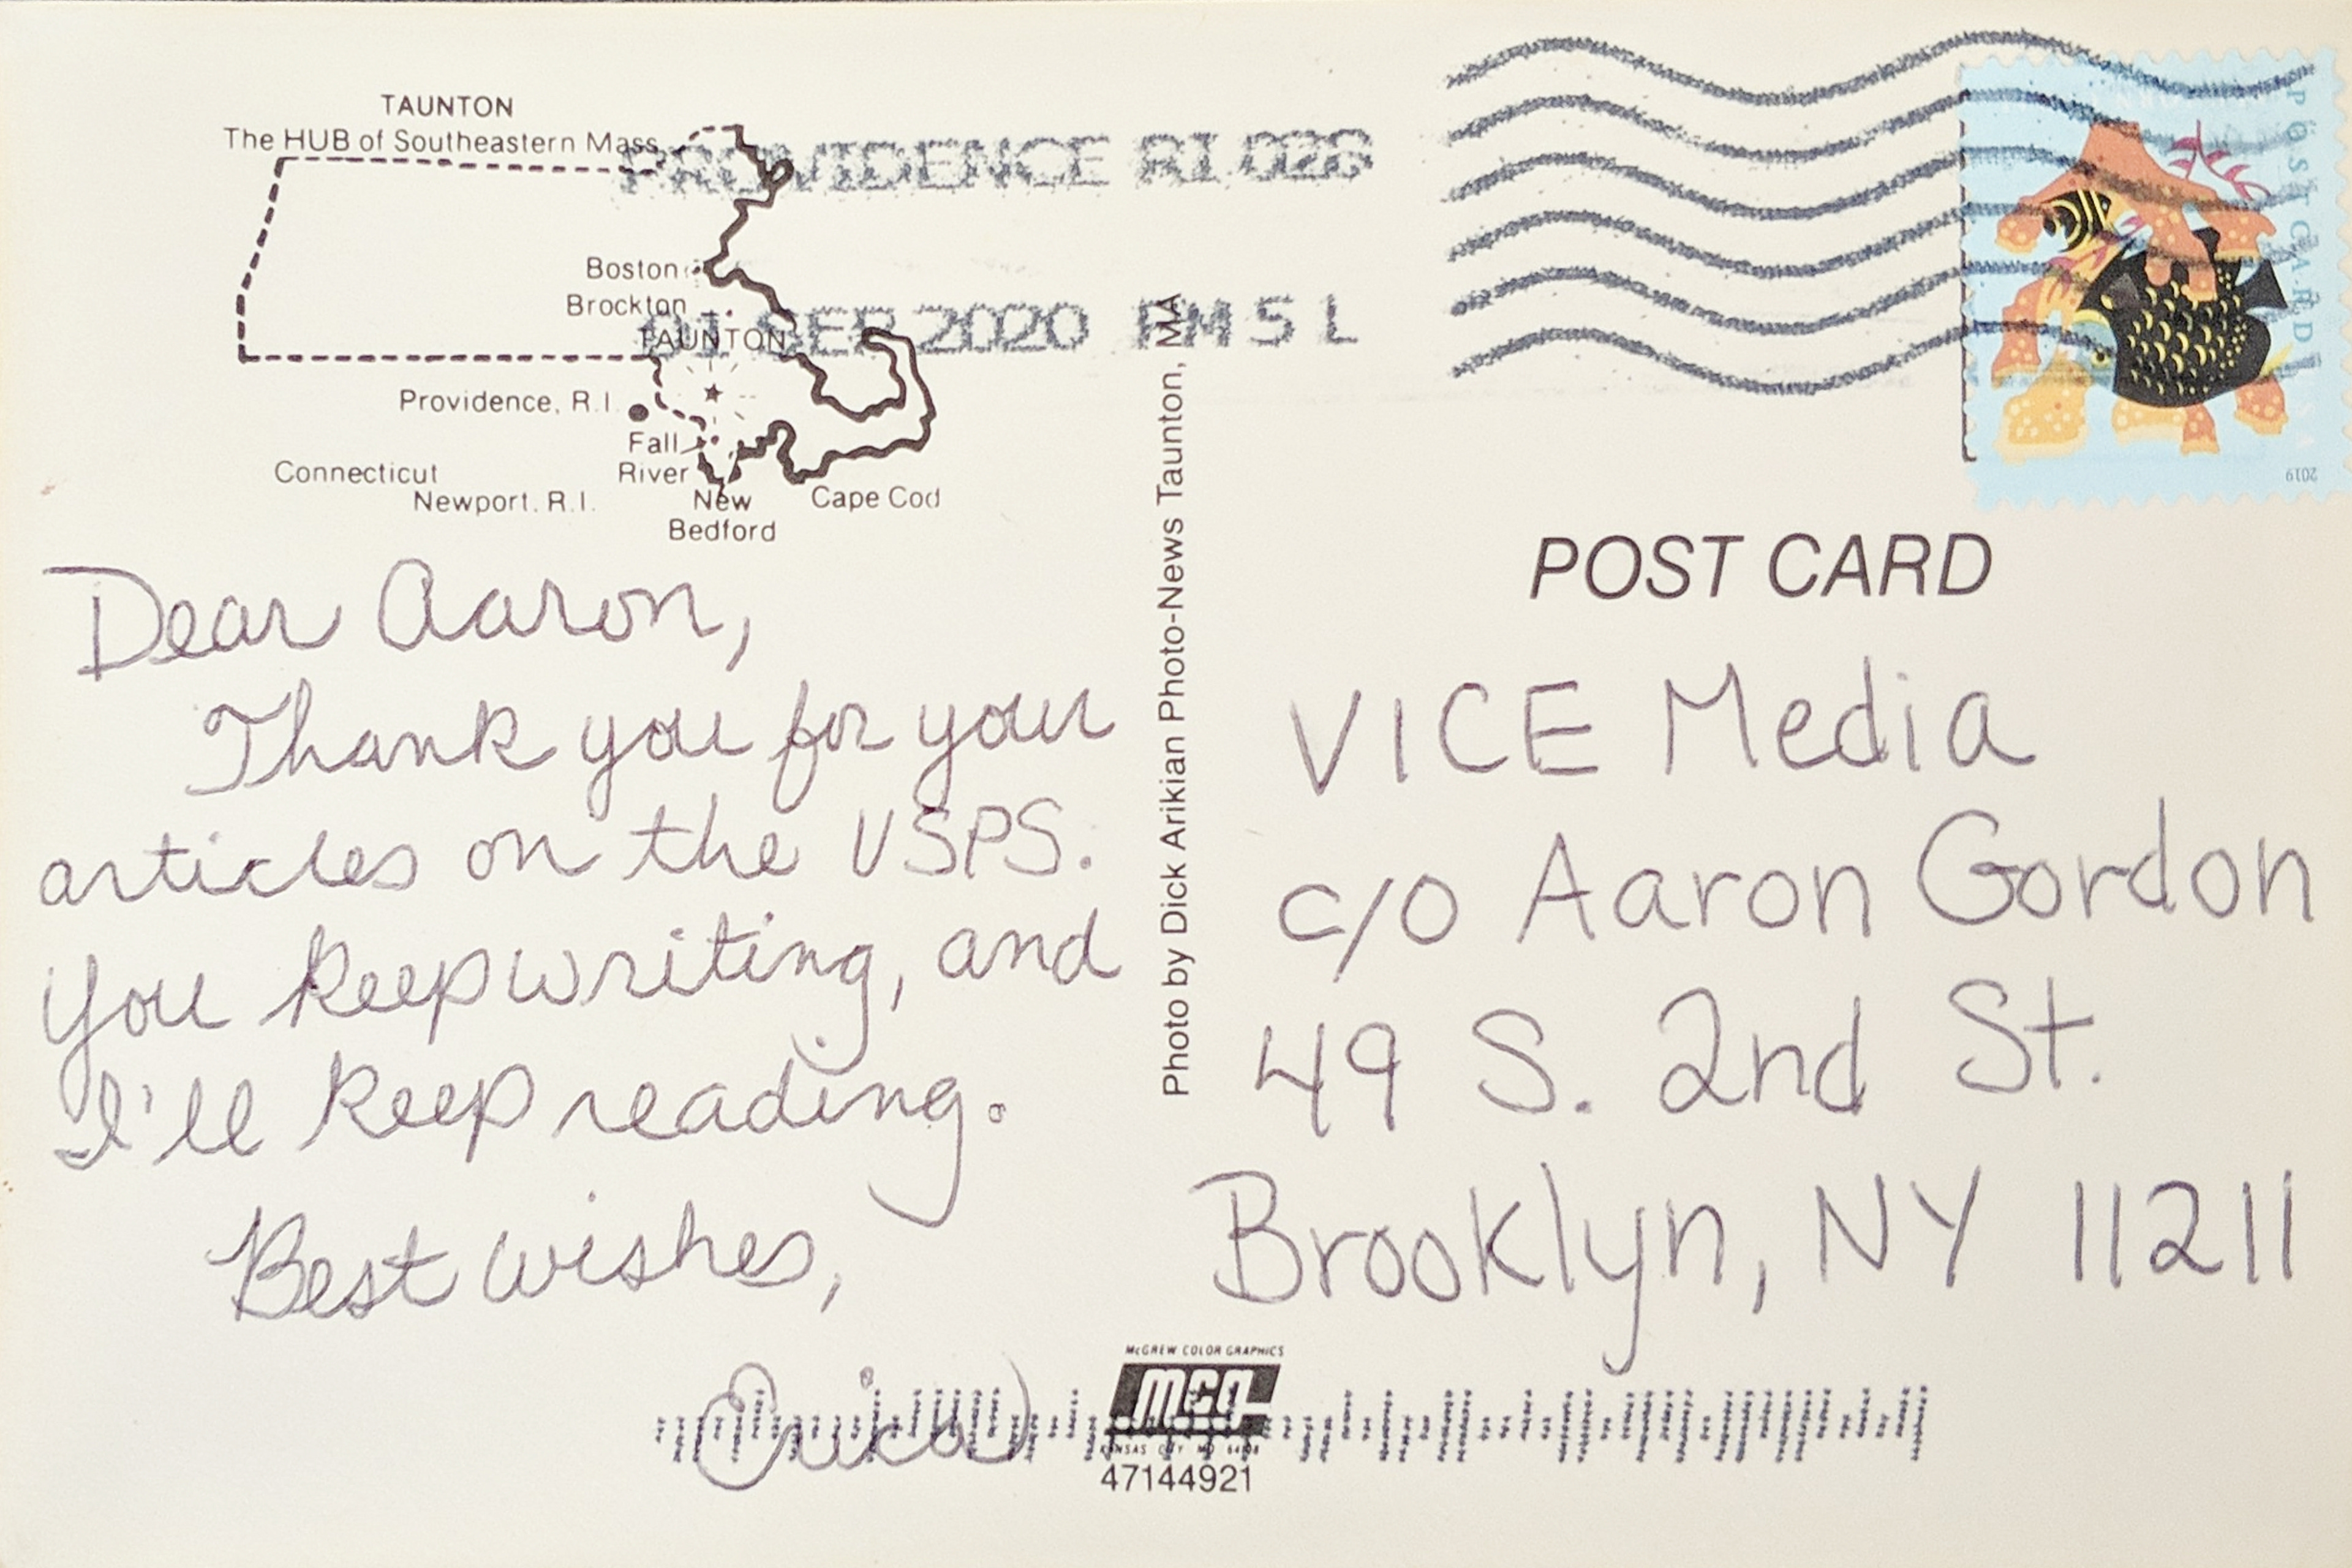 TAUNTON
The HUB of Southeastern Mass.
Boston
Brockton
TAUNTON
Providence, R.I.
Fall
River
Connecticut
Newport, R.I.
New
Bedford
Cape Cod
PROVIDENCE RI 028
SEP 2020 PM 5 L
POST CARD
2019
Dear Aaron,
Thank you for your
articles on the USPS.
You keep writing, and
I'll keep reading.
Best wishes,
Erica
Photo by Dick Arikian Photo-News Taunton, MA
POST CARD
VICE Media
c/o Aaron Gordon
49 S. 2nd St.
Brooklyn, NY 11211
McGREW COLOR GRAPHICS
mcg
KANSAS CITY MO
47144921